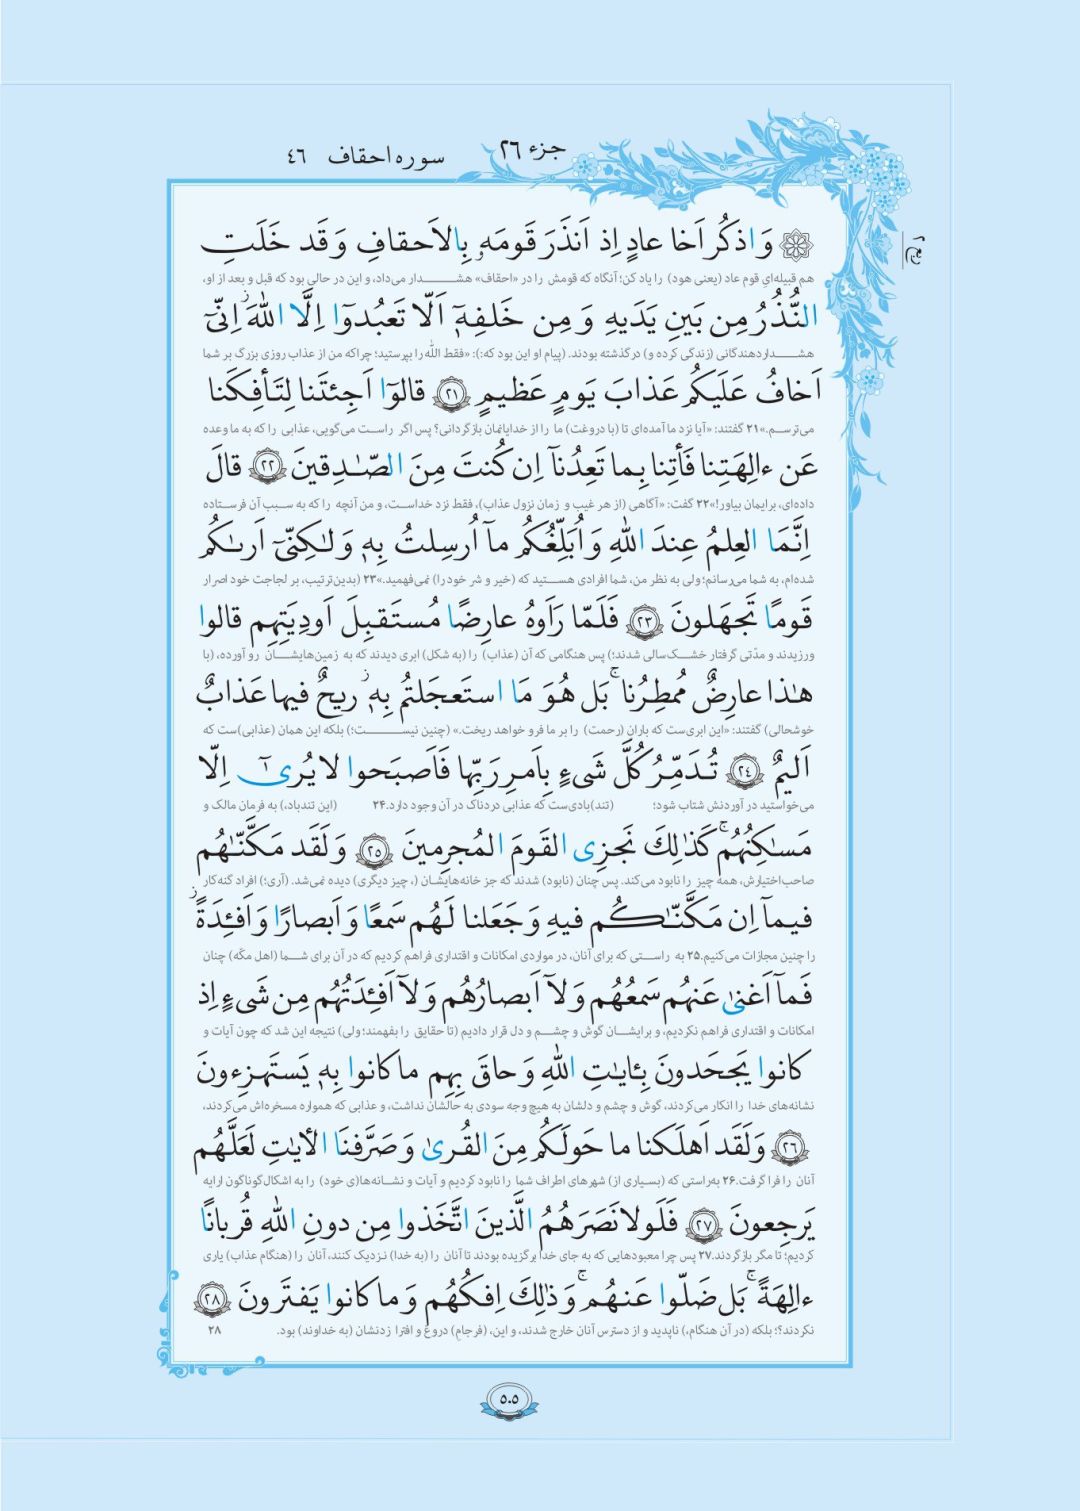 جزء ٢٦
سوره احقاف ٤٦
ربع ٢
وَاذكُر اَخا عادٍ اِذ اَنذَرَ قَومَهٗ بِالاَحقافِ وَ قَد خَلَتِ
هم قبیله‌ای قوم عاد (یعنی هود) را یاد کن؛ آنگاه که قومش را در «احقاف» هشدار می‌داد، و این در حالی بود که قبل و بعد از او،
النُّذُرُ مِن بَينِ يَدَيهِ وَ مِن خَلفِهٖٓ اَلّا تَعبُدوٓا اِلَّا اللّٰهَ ز اِنّىٓ
هشداردهندگانی (زندگی کرده و) درگذشته بودند. (پیام او این بود که:): «فقط اللّٰه را بپرستید؛ چراکه من از عذاب روزی بزرگ بر شما
اَخافُ عَلَيكُم عَذابَ يَومٍ عَظيمٍ ٢١ قالوٓا اَجِئتَنا لِتَأفِكَنا
می‌ترسم.»۲۱ گفتند: «آیا نزد ما آمده‌ای تا (با دروغت) ما را از خدایانمان بازگردانی؟ پس اگر راست می‌گویی، عذابی را که به ما وعده
عَن ءالِهَتِنا فَأتِنا بِما تَعِدُنآ اِن كُنتَ مِنَ الصّٰدِقينَ ٢٢ قالَ
داده‌ای، برایمان بیاور!»۲۲ گفت: «آگاهی (از هر غیب و زمان نزول عذاب)، فقط نزد خداست، و من آنچه را که به سبب آن فرستاده
اِنَّمَا العِلمُ عِندَ اللّٰهِ وَ اُبَلِّغُكُم مآ اُرسِلتُ بِهٖ وَلٰكِنّىٓ اَرىٰكُم
شده‌ام، به شما می‌رسانم؛ ولی به نظر من، شما افرادی هستید که (خیر و شر خود را) نمی‌فهمید.»۲۳ (بدین‌ترتیب، بر لجاجت خود اصرار
قَومًا تَجهَلونَ ٢٣ فَلَمّا رَاَوهُ عارِضًا مُستَقبِلَ اَودِيَتِهِم قالوا
ورزیدند و مدّتی گرفتار خشک‌سالی شدند؛) پس هنگامی که آن (عذاب) را (به شکل) ابری دیدند که به زمین‌هایشان رو آورده، (با
هٰذا عارِضٌ مُمطِرُنا ۚ بَل هُوَ مَا استَعجَلتُم بِهٖ ز ريحٌ فيها عَذابٌ
خوشحالی) گفتند: «این ابری‌ست که باران (رحمت) را بر ما فرو خواهد ریخت.» (چنین نیست؛) بلکه این همان (عذابی)ست که
اَليمٌ ٢٤ تُدَمِّرُ كُلَّ شَىءٍ بِاَمرِ رَبِّها فَاَصبَحوا لا يُرىٰٓ اِلّا
می‌خواستید در آوردنش شتاب شود؛ (تند)بادی‌ست که عذابی دردناک در آن وجود دارد.۲۴ (این تندباد،) به فرمان مالک و
مَسٰكِنُهُم ۚ كَذٰلِكَ نَجزِى القَومَ المُجرِمينَ ٢٥ وَ لَقَد مَكَّنّٰهُم
صاحب‌اختیارش، همه چیز را نابود می‌کند. پس چنان (نابود) شدند که جز خانه‌هایشان (، چیز دیگری) دیده نمی‌شد. (آری؛) افراد گنه‌کار
فيمآ اِن مَكَّنّٰكُم فيهِ وَ جَعَلنا لَهُم سَمعًا وَ اَبصارًا وَ اَفئِدَةً ز
را چنین مجازات می‌کنیم.۲۵ به راستی که برای آنان، در مواردی امکانات و اقتداری فراهم کردیم که در آن برای شما (اهل مکّه) چنان
فَمآ اَغنىٰ عَنهُم سَمعُهُم وَ لآ اَبصارُهُم وَ لآ اَفئِدَتُهُم مِن شَىءٍ اِذ
امکانات و اقتداری فراهم نکردیم، و برایشان گوش و چشم و دل قرار دادیم (تا حقایق را بفهمند؛ ولی) نتیجه این شد که چون آیات و
كانوا يَجحَدونَ بِـٔايٰتِ اللّٰهِ وَ حاقَ بِهِم ما كانوا بِهٖ يَستَهزِءونَ
نشانه‌های خدا را انکار می‌کردند، گوش و چشم و دلشان به هیچ وجه سودی به حالشان نداشت، و عذابی که همواره مسخره‌اش می‌کردند،
٢٦ وَ لَقَد اَهلَكنا ما حَولَكُم مِنَ القُرىٰ وَ صَرَّفنَا الأيٰتِ لَعَلَّهُم
آنان را فرا گرفت.۲۶ به‌راستی که (بسیاری از) شهرهای اطراف شما را نابود کردیم و آیات و نشانه‌ها(ی خود) را به اشکال گوناگون ارایه
يَرجِعونَ ٢٧ فَلَولا نَصَرَهُمُ الَّذينَ اتَّخَذوا مِن دونِ اللّٰهِ قُربانًا
کردیم؛ تا مگر بازگردند.۲۷ پس چرا معبودهایی که به جای خدا برگزیده بودند تا آنان را (به خدا) نزدیک کنند، آنان را (هنگام عذاب) یاری
ءالِهَةً ۚ بَل ضَلّوا عَنهُم ۚ وَ ذٰلِكَ اِفكُهُم وَ ما كانوا يَفتَرونَ ٢٨
نکردند؟؛ بلکه (در آن هنگام،) ناپدید و از دسترس آنان خارج شدند، و این، (فرجامِ) دروغ و افترا زدنشان (به خداوند) بود. ۲۸
٥٠٥